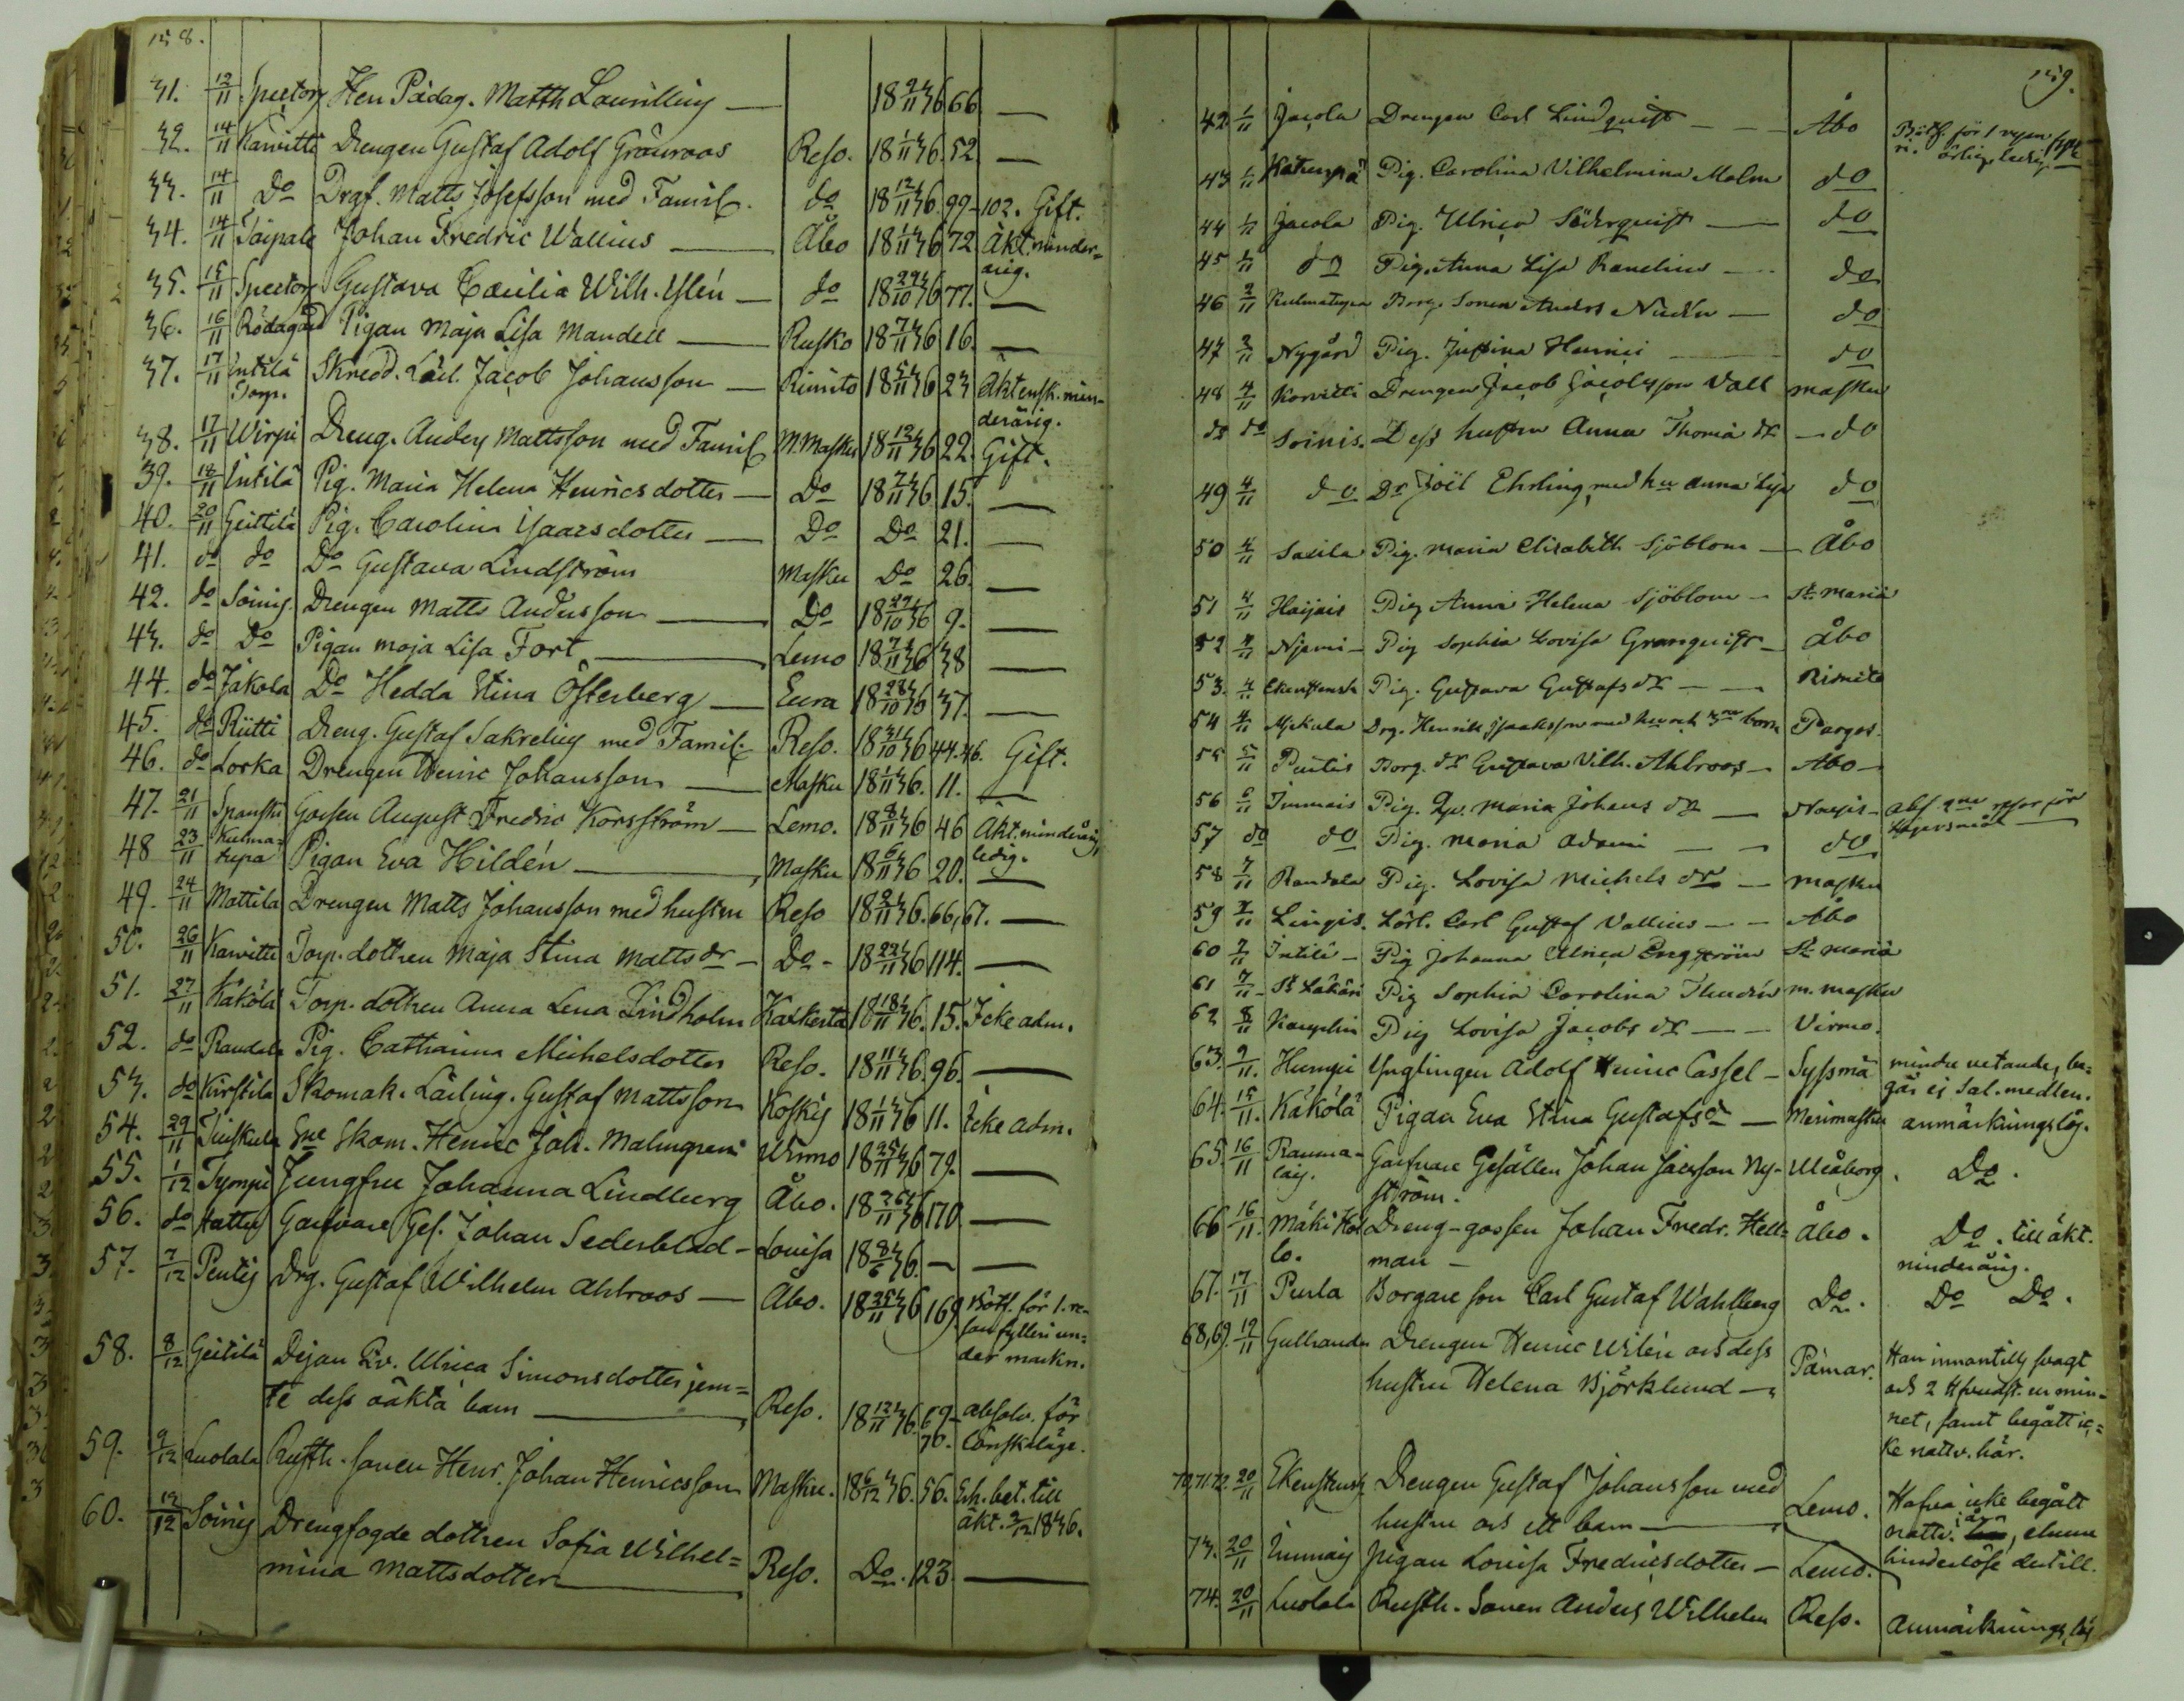 158.
31. 12/11 Spectory Hen Pädag. Matth Laurilling — 18 2/11 36 66 —
32. 14/11 Karvitti Drengen Gustaf Adolf Grönroos Reso. 18 1/11 36. 52. —
33. 14/11 Do Drgf. Matts Josefsson med Famil. do 18 12/11 36. 99-102. Gift.
34. 14/11 Taipale Johan Fredric Wallius — Åbo 18 1/11 36 72 Äkt. minder=
årig.
35. 15/11 Spectory Gustava Cæcilia Wilh. Ylén — do 18 29/10 36 77. —
36. 16/11 Rödagård Pigan Maja Lisa Mandell — Rusko 18 7/11 36 16. —
37. 17/11 Intilä Skredd. Lärl. Jacob Johansson — Rimito 18 5/11 36 23 Äktensk. min-
Torp. derårig.
38. 17/11 Wirpi Dreng. Anders Mattsson med Famil M. Masku 18 12/11 36 22. Gift.
39. 18/11 Intilä Pig. Maria Helena Henricsdotter — Do 18 7/11 36 15. —
40. 20/11 Geittilä Pig. Carolina Isaacsdotter — Do Do 21. —
41. do do Do Gustava Lindström Masku Do 26. —
42. do Soinis. Drengen Matts Andersson — Do 18 29/10 36 9. —
43. do Do Pigan Maja Lisa Fort — Lemo 18 7/11 36 38 —
44. do Jakola Do Hedda Stina Österberg — Eura 18 28/10 36 37. —
45. do Riitti Dreng. Gustaf Sakrelius med Famil. Reso. 18 31/10 36 44.46. Gift.
46. do Lorka Drengen Henric Johansson — Masku 18 1/11 36. 11. —
47. 21/11 Spanski Gossen August Fredric Korsström — Lemo. 18 8/11 36 46 Äkt. minderårig,
48 23/11 Kulma- Pigan Eva Hildén — Masku 18 6/11 36 20. ledig. —
tupa
49. 24/11 Mattila Drengen Matts Johansson med hustru Reso 18 2/11 36. 66,67. —
50. 26/11 Karvitti Torp. dottren Maja Stina Matts dr — Do - 18 22/11 36 114. —
51. 27/11 Käkölä Torp. dottren Anna Lena Lindholm Karkerta 18 18/11 36. 15. Icke adm.
52. do Randala Pig. Catharina Michelsdotter Reso. 18 11/11 36. 96. —
53. do Kirstila Skomak. Lärling. Gustaf Mattsson Koskis 18 1/11 36 11. Icke adm.
54. 29/11 Skom. Henric Joh. Malmgren Wirmo 18 25/11 36 79. —
55. 1/12 Tyonpi Jungfru Johanna Lindberg Åbo. 18 26/11 36 170 —
56. do Garfvare Ges. Johan Sederblad — Lovisa 18 8/6 36. — —
57. 7/12 Pentis Drg. Gustaf Wilhelm Ahlroos — Åbo. 18 25/11 36 169. Bötf. för 1. re-
san fylleri un=
der markn.
58. 8/12 Geitilä Dejan Lv. Ulrica Simonsdotter jem=
te dess oäkta barn — Reso. 18 12/11 36. 69- absolv. för
70. lönskaläge.
59. 9/12 Luolala Rusth. sonen Henr. Johan Henricsson Masku. 18 6/12 36. 56. Erh. bet. till
äkt. 3/12 1836.
60. 12/12 Soinis Drengfogde dottren Sofia Wilhel=
mina Mattsdotter — Reso. Do. 123. —
159.
42 1/11 Jacola Drengen Carl Lindquist — Åbo Bötf. för 1 resan fylle
ri. ärlig, ledig
43 1/11 Pig. Carolina Vilhelmina Malm do
44 1/11 Jacola Pig. Ulrica Söderquist — do
45 1/11 do Pig. Anna Lisa Ranelius — do
46 2/11 Kulmatupa Borg. Sonen Anders — do
47 3/11 Nygård Pig. Justina Henrici — do
48 4/11 Korvitti Drengen Jacob Jacobsson Vall Masku
do do Soinis. Dess hustru Anna Thomä dr — do
49 4/11 do Dr Joël Ehrling, med hu Anna Lisa do
50 4/11 Saxila Pig. Maria Elisabeth Sjöblom — Åbo
51 4/11 Haijais Pig Anna Helena Sjöblom — St. Mariä
52 4/11 Njemi — Pig Sophia Lovisa Granquist — Åbo
53. 4/11 Ekenstensk Pig. Gustava Gustafs dr — Rimito
54 4/11 Drg. Henrik Isaaksson med hu och 3ne barn Pargas.
55 5/11 Pentis Borg. dr Gustava Vilh. Ahlroos — Åbo —
56 6/11 Immais Pig. Qv. Maria Johans dr — Nousis — abs. 2ne resor för
57 do do Pig. Maria Adami — do
58 7/11 Randala Pig. Lovisa Michels dr — Masku
59 7/11 Lingis. Lärl. Carl Gustaf Vallius — Åbo
60 7/11 Intilä — Pig Johanna Ulrica Engström St. Mariä
61 7/11 Pig Sophia Carolina Thudén M. Masku
62 8/11 Pig Lovisa Jacobs dr — Virmo.
63. 9/11. Humpi Ynglingen Adolf Henric Cassel — Syssmä mindre vetande, be=
går ej Sal. medlen.
64. 15/11. Käkölä Pigan Eva Stina Gustafsdr — Merimasku anmärkningslös.
65. 16/11 Rauma- Garfvare Gesällen Johan Jacobsson Ny- Uleåborg. Do.
lais. ström.
66 16/11. Mäki Kol Dreng-gossen Johan Fredr. Hell= Åbo. Do. till äkt.
lo. man — minderårig.
67. 17/11 Perla Borgare son Carl Gustaf Wahlberg Do. Do Do.
68,69. 19/11 Gullranda Drengen Henric Wilén och dess
hustru Helena Björklund — Pämar. Han innantill svagt
och 2 Hfvudst. ur min-
net, samt begått ic=
ke nattv. här.
70,71.72. 20/11 Ekenstensk Drengen Gustaf Johansson med
hustru och ett barn — Lemo. Hafva icke begått
nattv. här, ehuru
hinderlöse dertill.
73. 20/11 Immais Pigan Lovisa Fredricsdotter — Lemo.
74. 20/11 Luolala Rusth. Sonen Anders Wilhelm Reso. Anmärkningslös